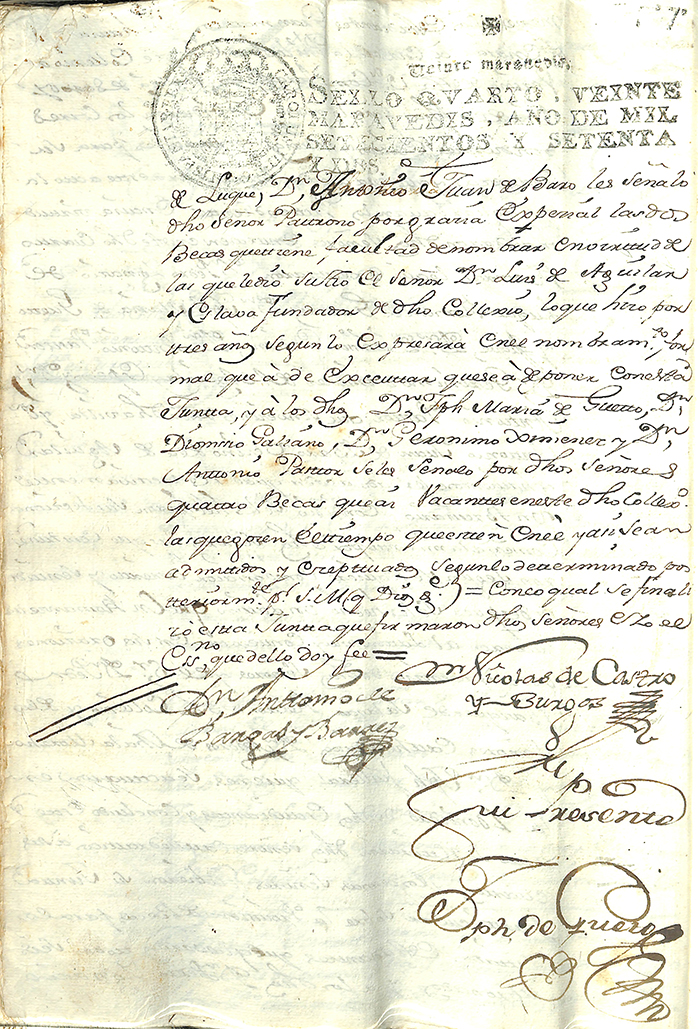 Veinte maravedis.
SELLO QVARTO, VEINTE
MARAVEDIS, AÑO DE MIL
SETECIENTOS Y SETENTA
Y DOS.
de Luque, Dn. Antonio & Juan de Baro les señalo
dho Señor Patrono por gracia expecial las dos
Becas que tiene facultad de nombrar en virtud de
las que ledio su tio el Señor Dn Luis de Aguilar
y Eslava fundador de dho Collexio, lo que hizo por
tres años segun lo expresarà en el nombram.to for
mal que à de executar que se à de poner con esta
Junta, y à los dhos Dn Jph Maria de Guero, Dn
Dionicio Galiano, Dn Geronimo Ximenez y Dn
Antonio Pastor se les señalo por dhos Señores
quatro Becas que ai Vacantes en este dho Collexo.
las que gozen el tiempo que esten en el y asi sean
admitidos y exeptuados segun lo determinado pos
teriorm.te p.r S. M. (q Dios g.e) = Con lo qual se finali
zo esta Junta que firmaron dhos Señores & Yo el
Ess.no, que dello doy fee =
Dn Nicolas de Castro
y Burgos
Dn Antonio de
Bargas y
fui Presente
Jph. de Guero